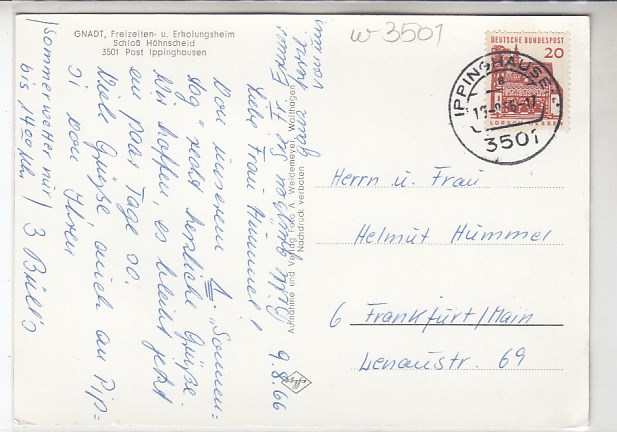 GNADT, Freizeiten- u. Erholungsheim
Schloß Höhnscheid
3501 Post Ippinghausen
w 3501
DEUTSCHE BUNDESPOST
20
LORSCH HESSEN
IPPINGHAUSEN
3501
9.8.66
Liebe Frau Hümmel!
Von unserem 1. "Sonnen-
tag" recht herzliche Grüße.
Wir hoffen, es bleibt jetzt
ein paar Tage so.
Viele Grüße auch an Pip=
si von Ihren
3 Büll's
/Sommerwetter nur
bis 14⁰⁰ Uhr/
Aufnahme und Verlag Foto A. Weidemeyer, Wolfhagen
Nachdruck verboten
Herrn u. Frau
Helmut Hümmel
6 Frankfurt/Main
Lenaustr. 69